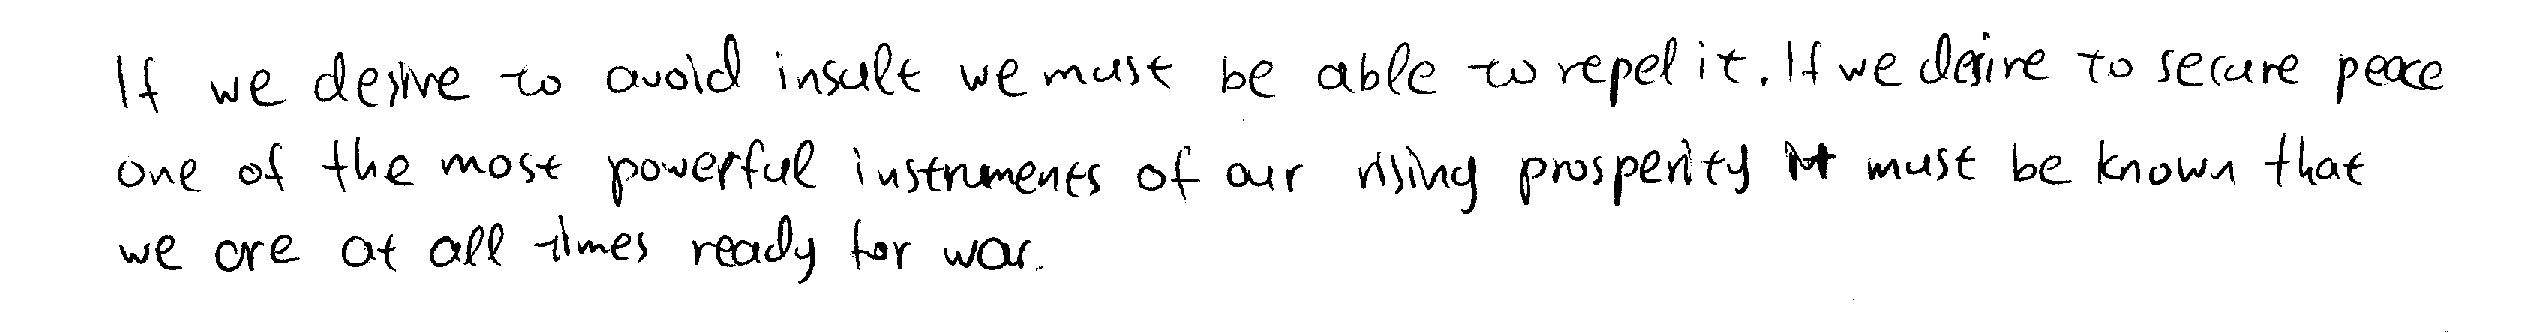 If we desire to avoid insult we must be able to repel it. If we desire to secure peace
one of the most powerful instruments of our rising prosperity it must be known that
we are at all times ready for war.